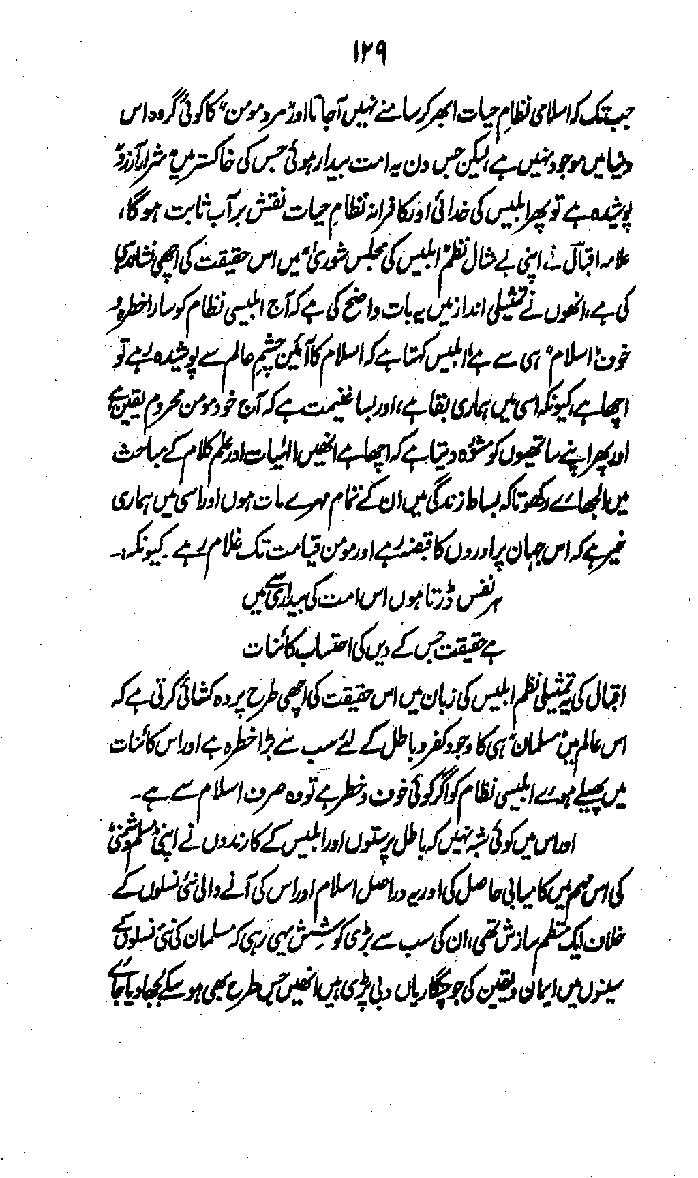 ۱۲۹
جب تک کہ اسلامی نظامِ حیات ابھر کر سامنے نہیں آجاتا اور ”مرد مومن“ کا کوئی گروہ اس
دنیا میں موجود نہیں ہے، لیکن جس دن یہ امت بیدار ہوئی جس کی خاکستر میں ”شرار آرزو“
پوشیدہ ہے تو پھر ابلیس کی خدائی اور کافرانہ نظام حیات نقش بر آب ثابت ہوگا،
علامہ اقبالؔ نے اپنی بے مثال نظم ”ابلیس کی مجلس شوریٰ“ میں اس حقیقت کی اچھی نشاندہی
کی ہے، انھوں نے تمثیلی انداز میں یہ بات واضح کی ہے کہ آج ابلیسی نظام کو سارا خطرہ و
خون ”اسلام“ ہی سے ہے، ابلیس کہتا ہے کہ اسلام کا آئین چشمِ عالم سے پوشیدہ رہے تو
اچھا ہے، کیونکہ اسی میں ہماری بقا ہے، اور بسا غنیمت ہے کہ آج خود مومن محروم یقین ہے
اور پھر اپنے ساتھیوں کو مشورہ دیتا ہے کہ اچھا ہے انھیں الٰہیات اور علم کلام کے مباحث
میں الجھائے رکھو تاکہ بساط زندگی میں ان کے تمام مہرے مات ہوں اور اسی میں ہماری
خیر ہے کہ اس جہان پر اوروں کا قبضہ رہے اور مومن قیامت تک غلام رہے۔ کیونکہ:۔
ہر نفس ڈرتا ہوں اس امت کی بیداری سے میں
ہے حقیقت جس کے دیں کی احتساب کائنات
اقبال کی یہ تمثیلی نظم ابلیس کی زبان میں اس حقیقت کی اچھی طرح پردہ کشائی کرتی ہے کہ
اس عالم میں ”مسلمان“ ہی کا وجود کفر و باطل کے لئے سب سے بڑا خطرہ ہے اور اس کائنات
میں پھیلے ہوئے ابلیسی نظام کو اگر کوئی خون و خطر ہے تو وہ صرف اسلام سے ہے۔
اور اس میں کوئی شبہ نہیں کہ باطل پرستوں اور ابلیس کے کارندوں نے اپنی ”مسلم دشمنی“
کی اس مہم میں کامیابی حاصل کی اور یہ دراصل اسلام اور اس کی آنے والی نئی نسلوں کے
خلاف ایک منظم سازش تھی، ان کی سب سے بڑی کوشش یہی رہی کہ مسلمان کی نئی نسلوں کے
سینوں میں ایمان و یقین کی جو چنگاریاں دبی پڑی ہیں انھیں جس طرح بھی ہو سکے بجھا دیا جائے